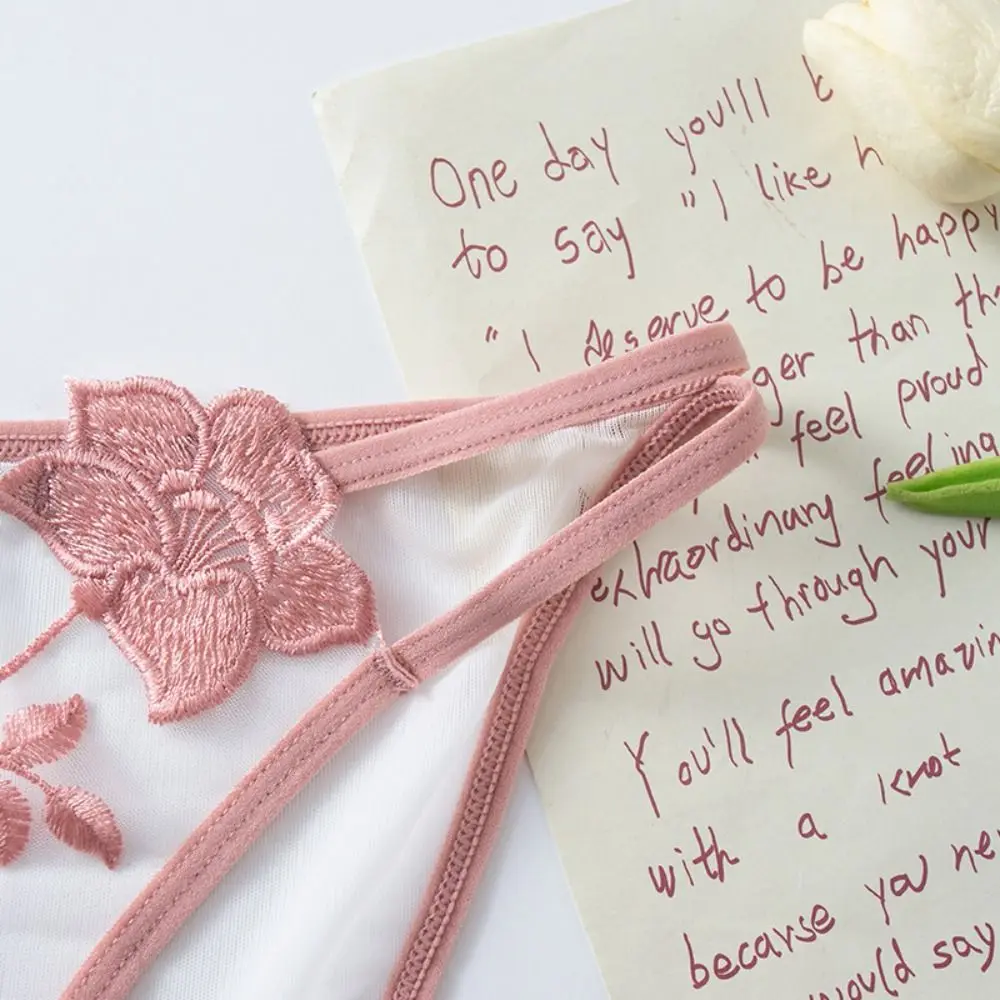 One day you'll
to say "I like
"I deserve to be happy
than
feel proud
feeling
extraordinary
will go through your
You'll feel
with a knot
because you
would say